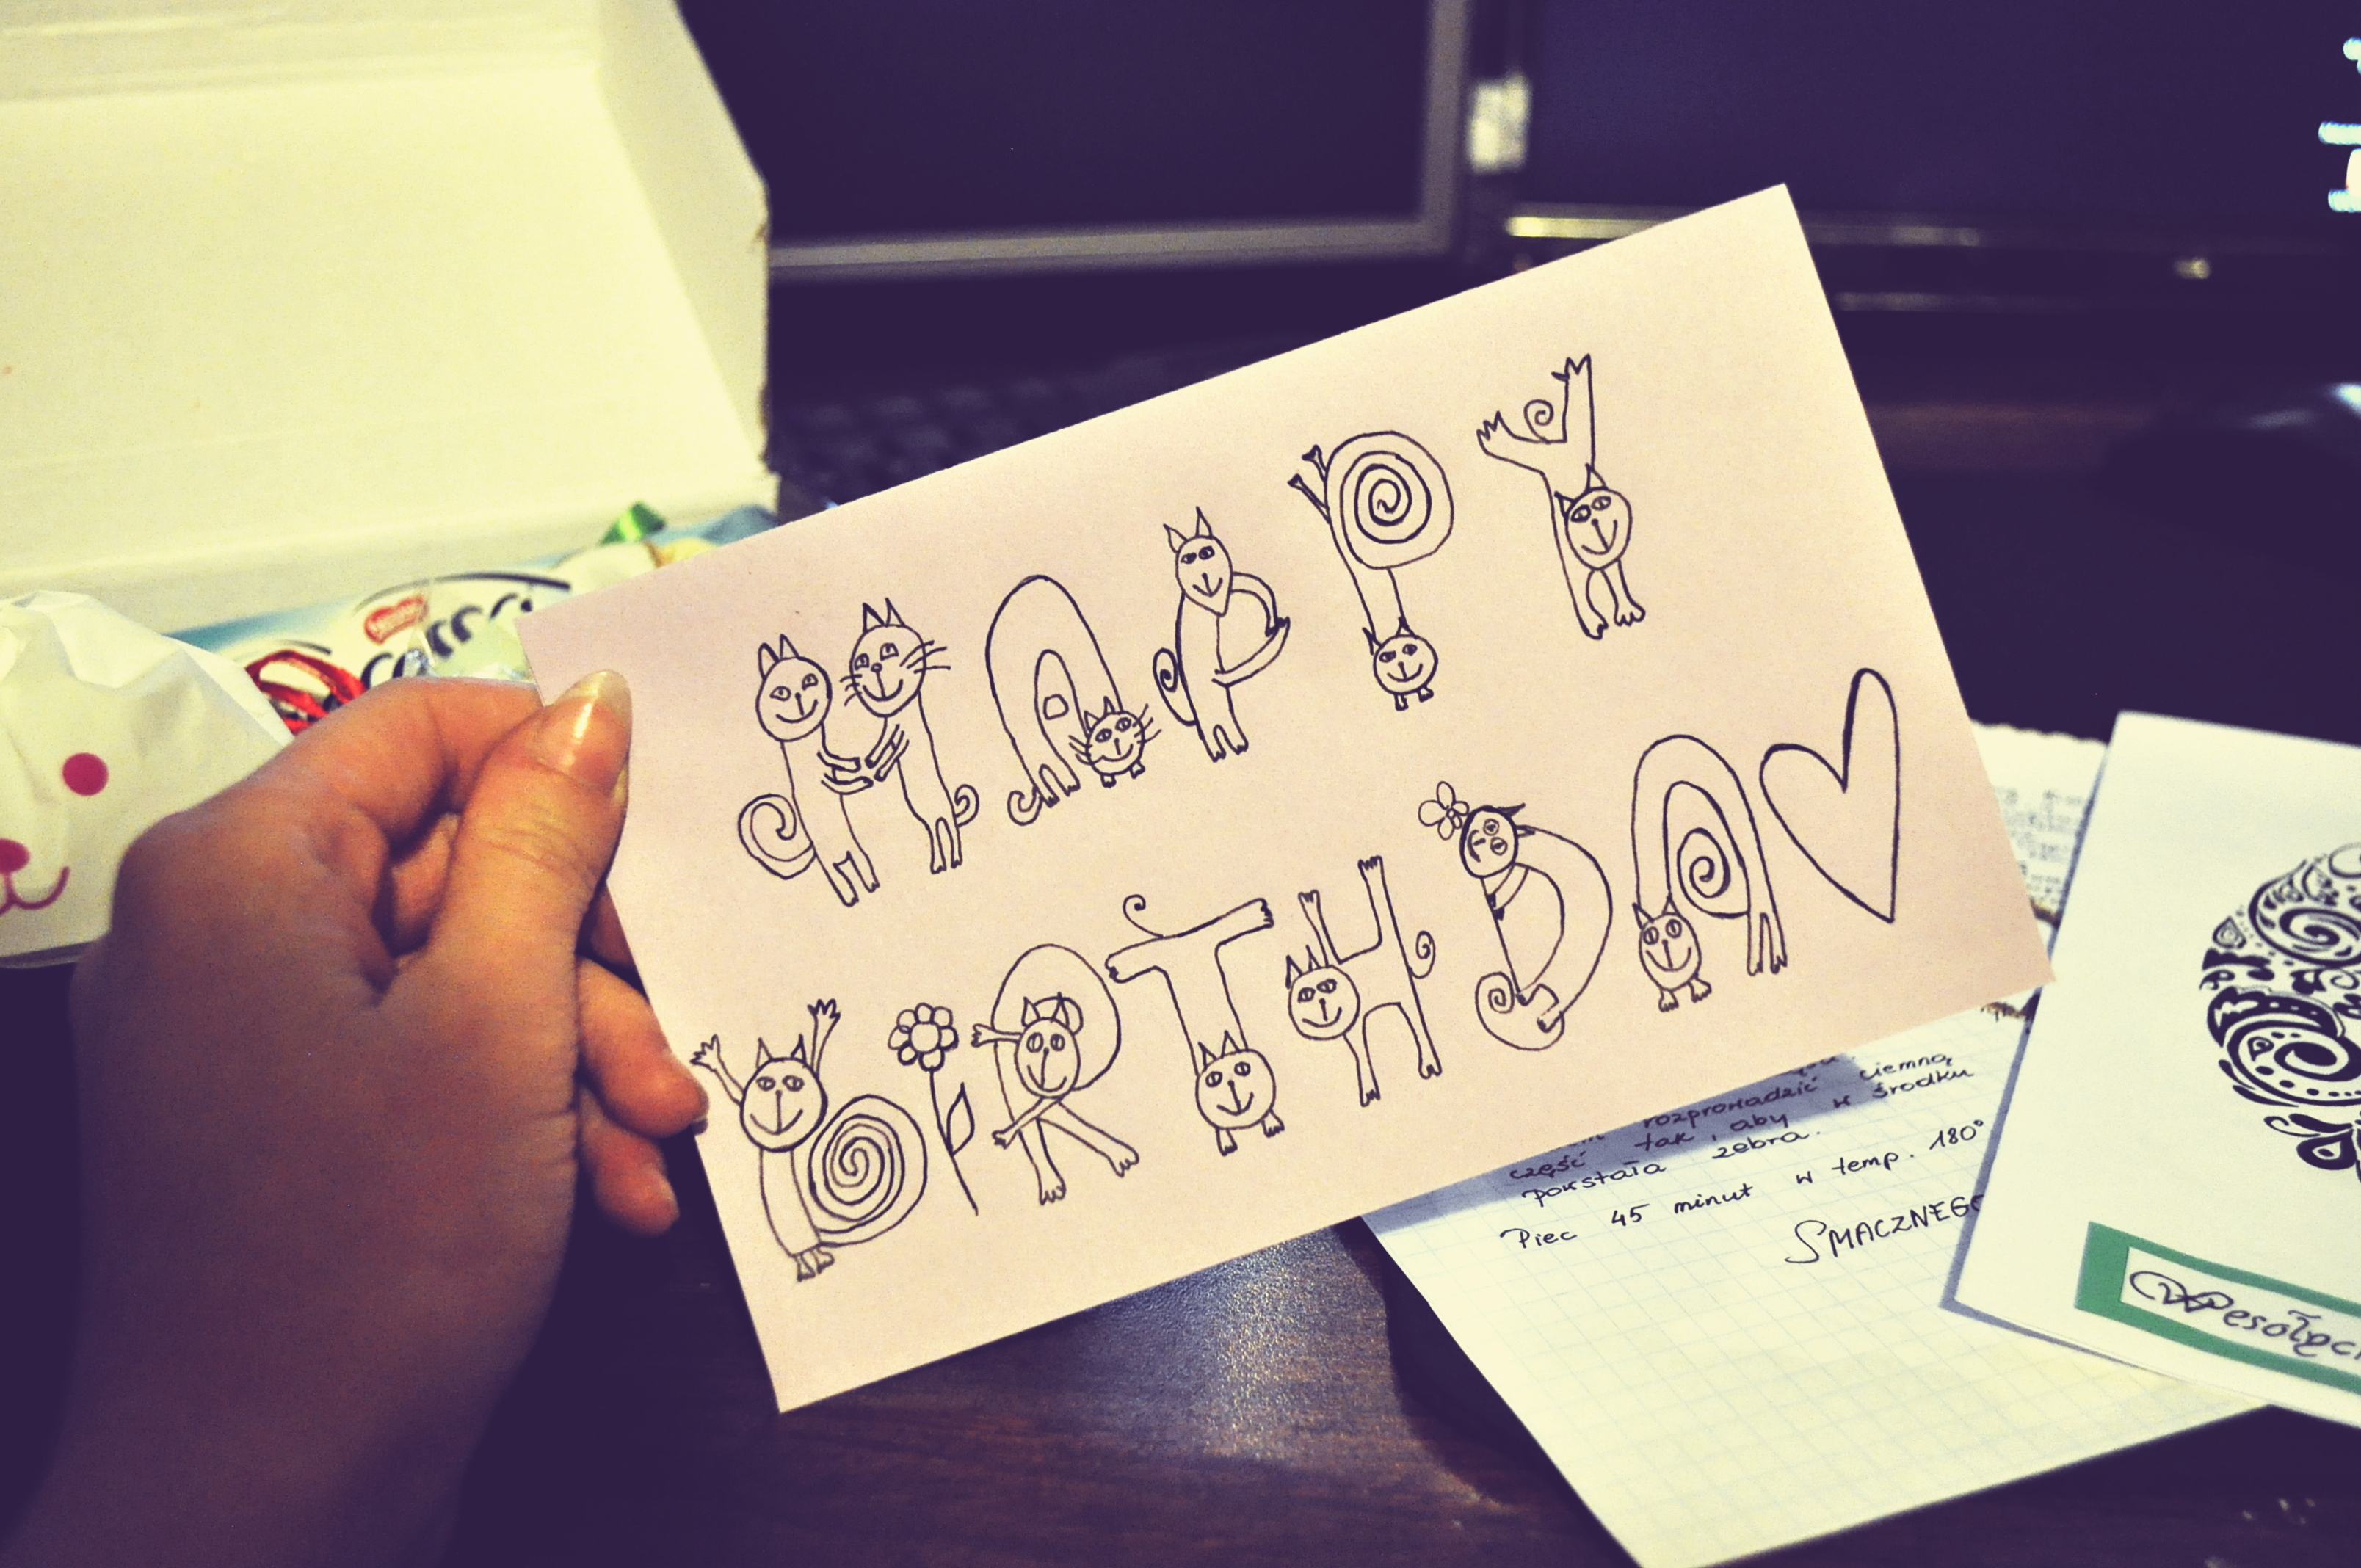 HAPPY
BIRTHDA♥
Nestlé
rozprowadzić ciemną
część tak, aby w środku
powstała zebra.
Piec 45 minut w temp. 180°
SMACZNEGO
Wesołyc